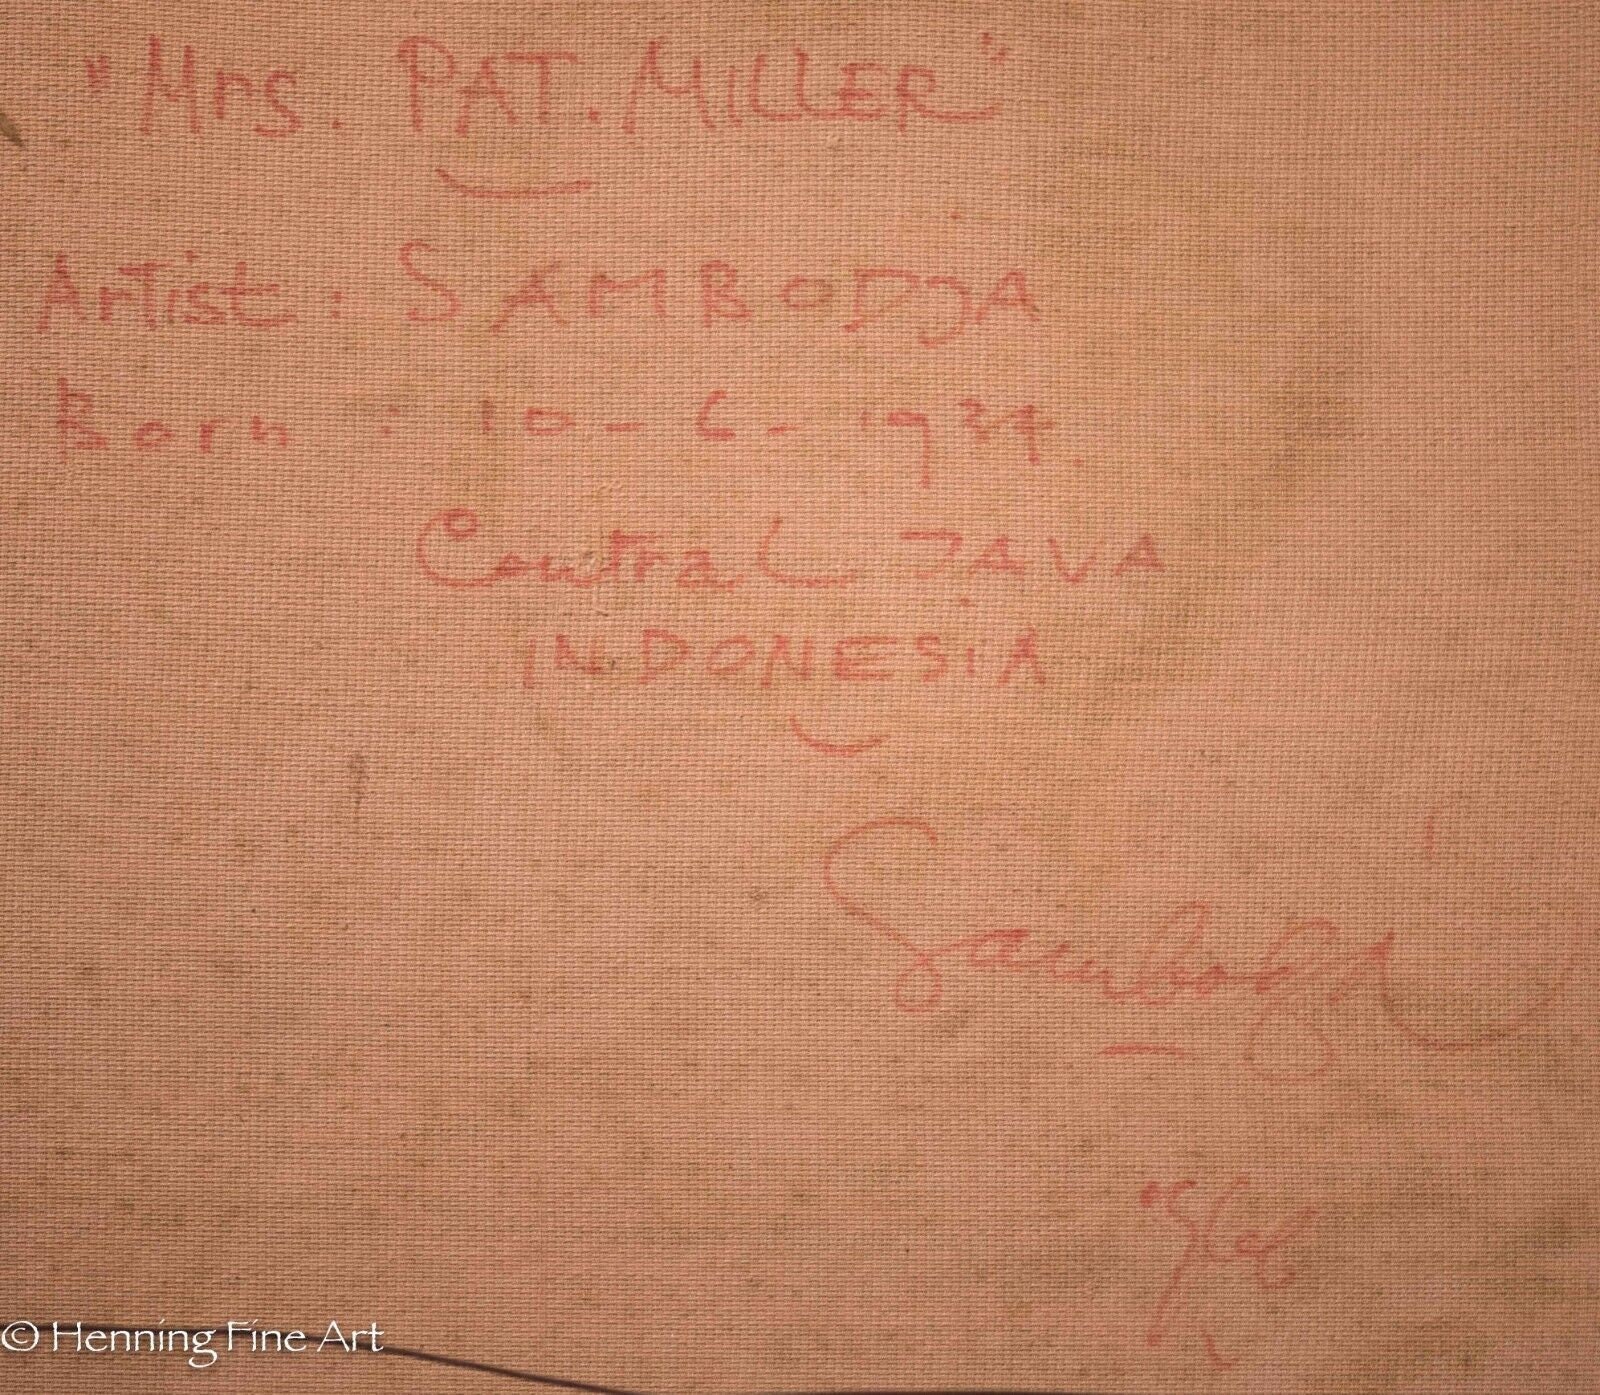 "Mrs. PAT. MILLER"
Artist: SAMBODJA
Born : 10-6-1934.
Central JAVA
INDONESIA
Sambodja
© Henning Fine Art